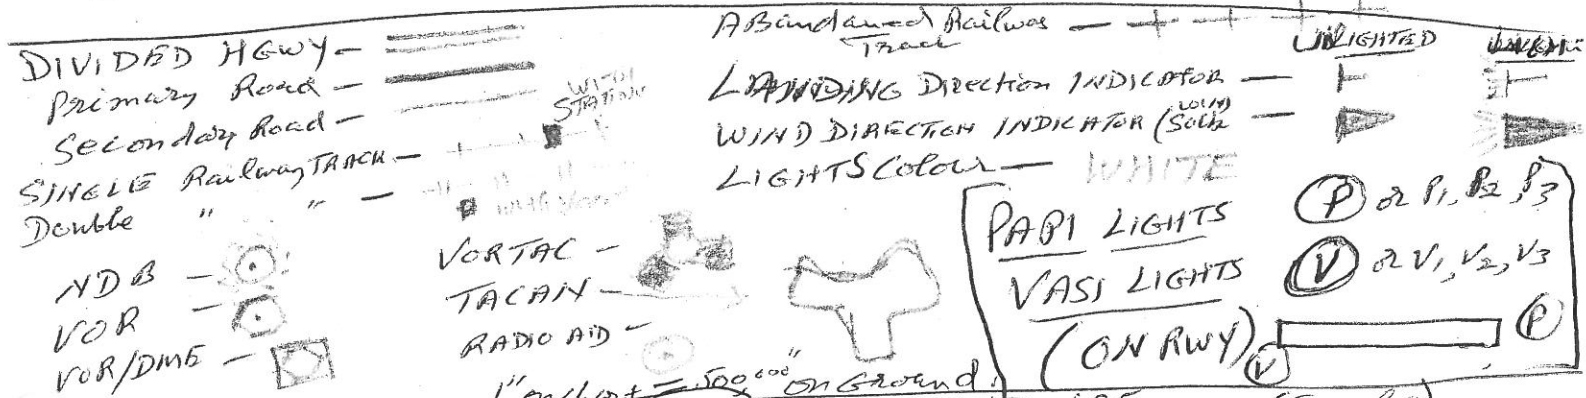 DIVIDED HGWY -
Primary Road -
Secondary Road -
SINGLE Railway TRACK -
WITH STATION
Double " " -
NDB -
VOR -
VOR/DME -
VORTAC -
TACAN -
RADIO AID -
1" on chart = 500,000" on Ground.
ABandauned Railway Track -
UNLIGHTED
LANDING Direction INDICATOR -
WIND DIRECTION INDICATOR (WIND Sock -
LIGHTS Colour - WHITE
PAPI LIGHTS P or P1, P2, P3
VASI LIGHTS V or V1, V2, V3
(ON RWY) V P